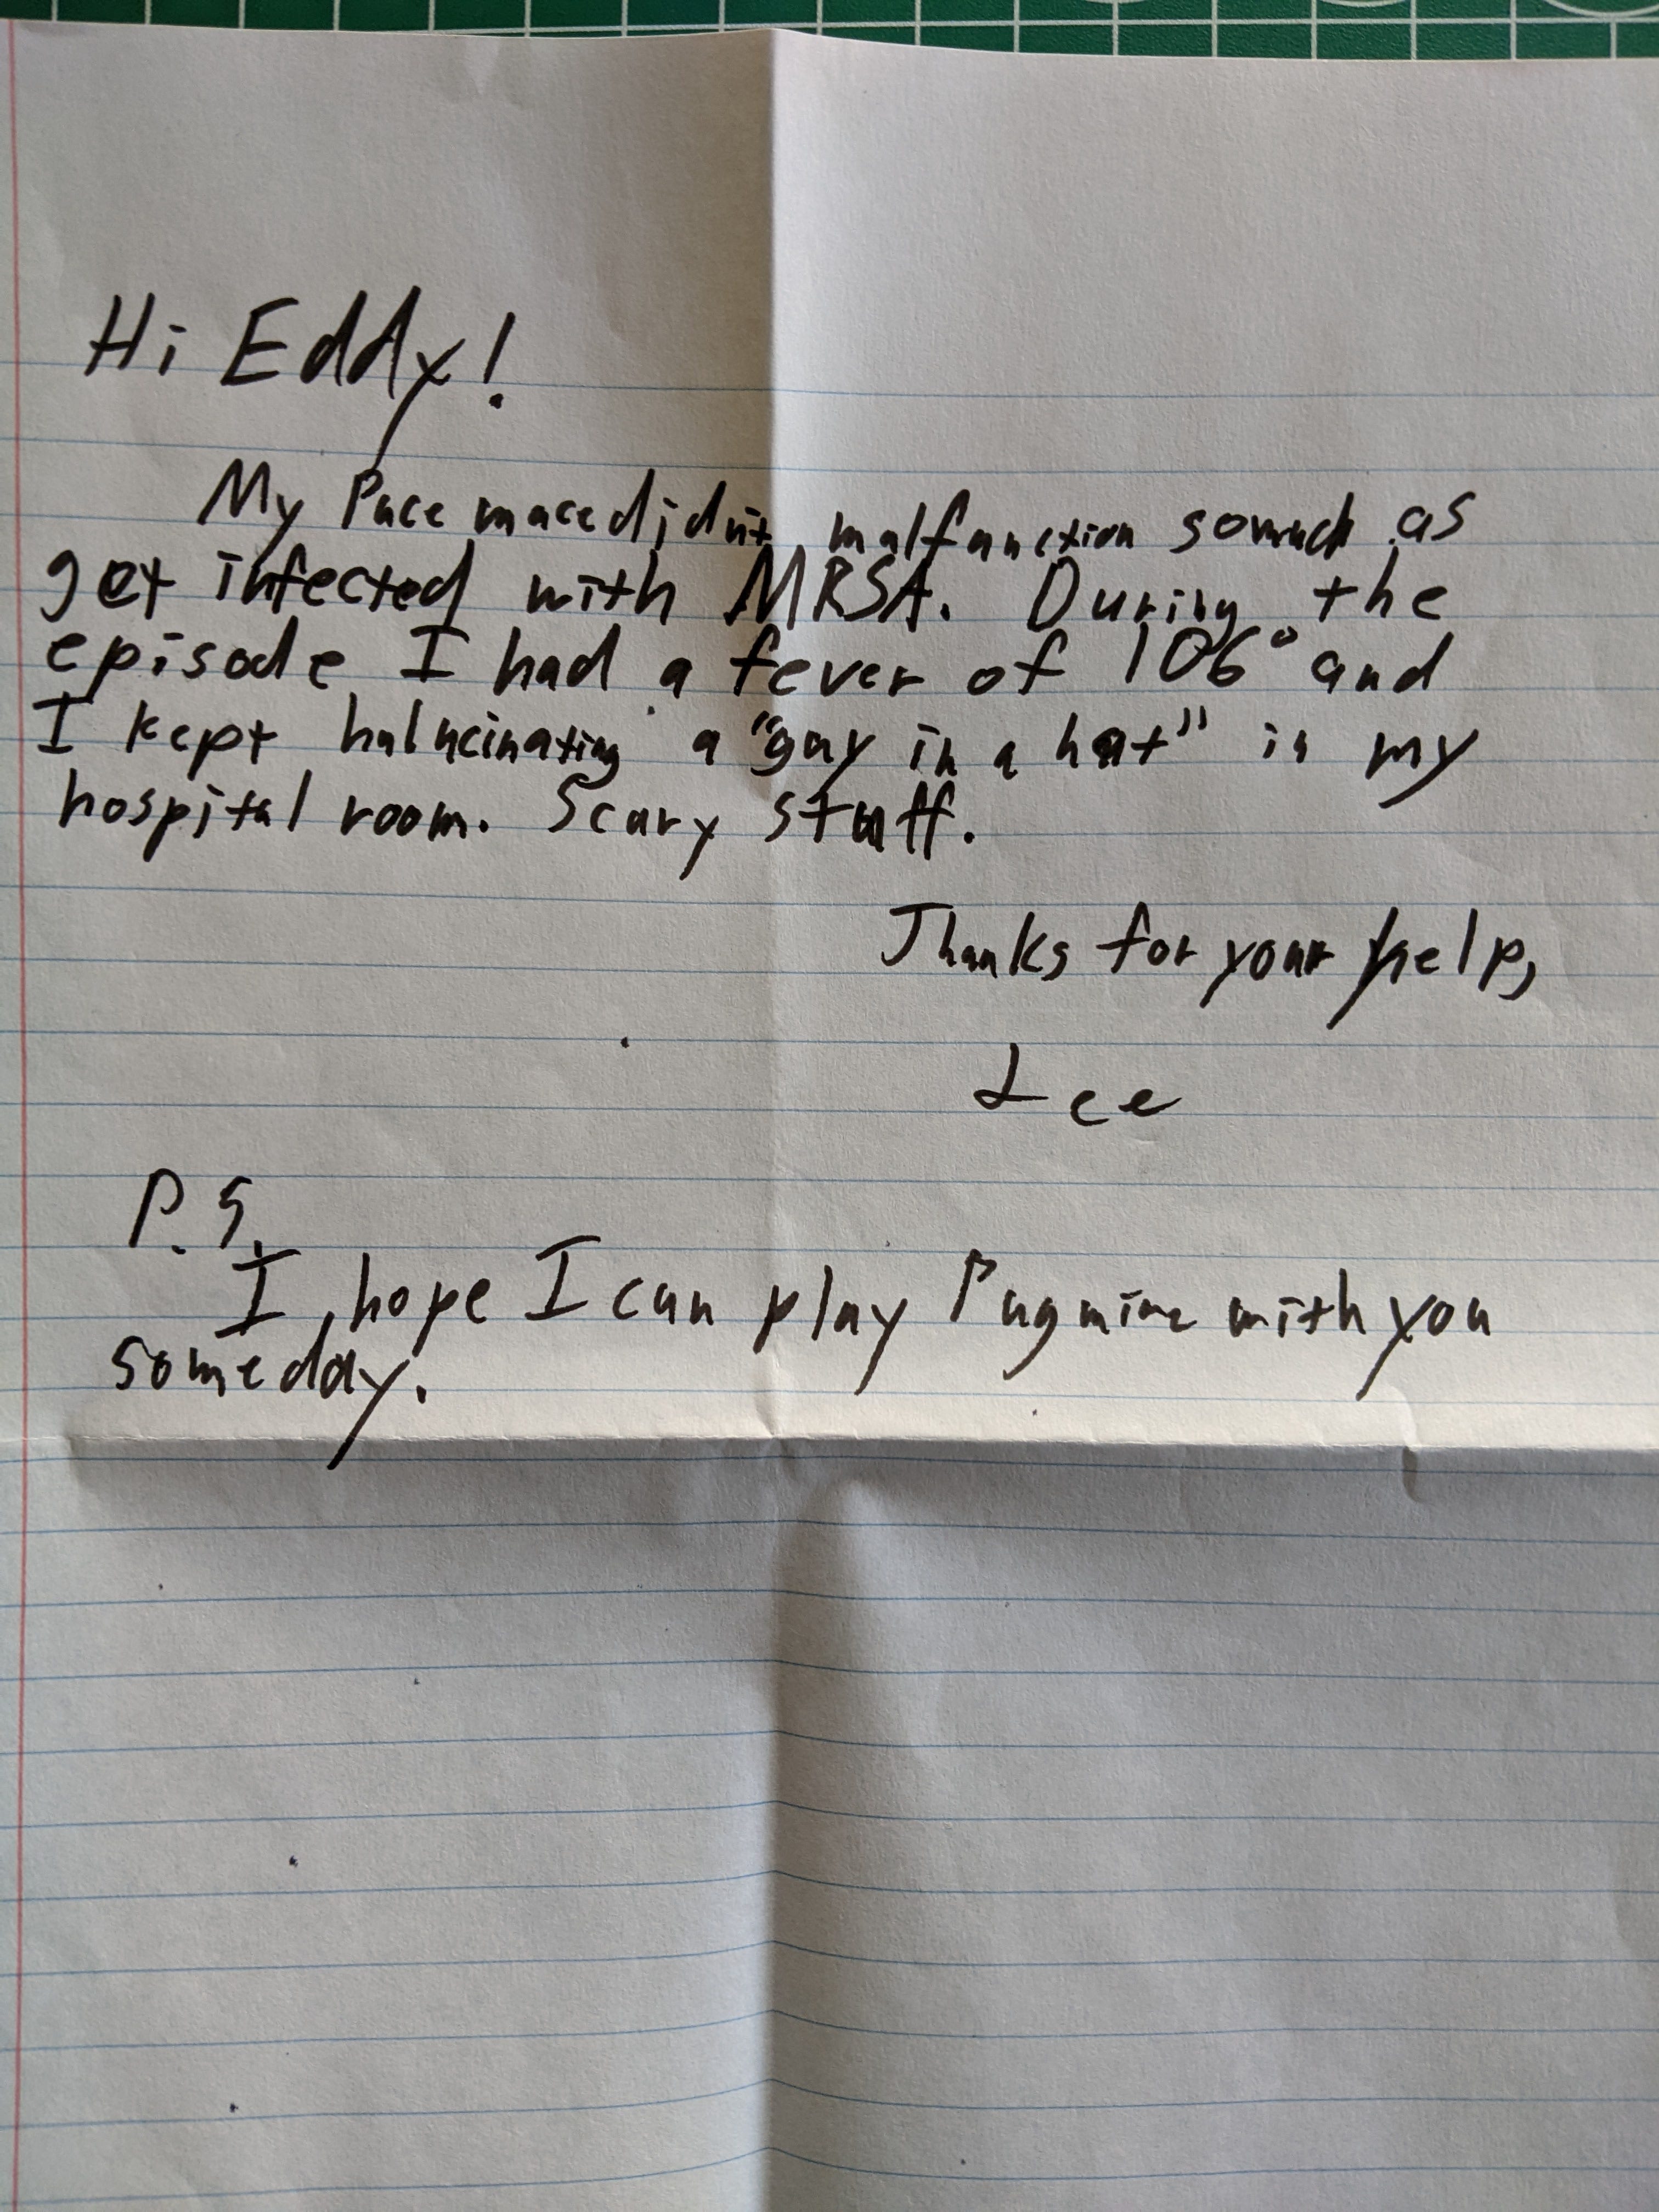 Hi Eddy!
My Pacemace didnt malfunction somuch as
get infected with MRSA. During the
episode I had a fever of 106° and
I kept halucinating a "guy in a hat" in my
hospital room. Scary stuff.
Thanks for your help,
Lee
P.S.
I hope I can play Pugmire with you
someday.